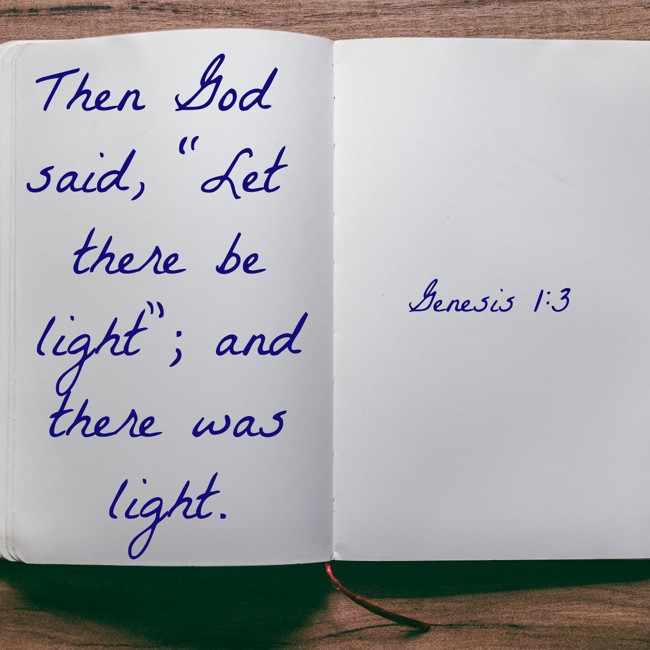 Then God
said, “Let
there be
light”; and
there was
light.
Genesis 1:3